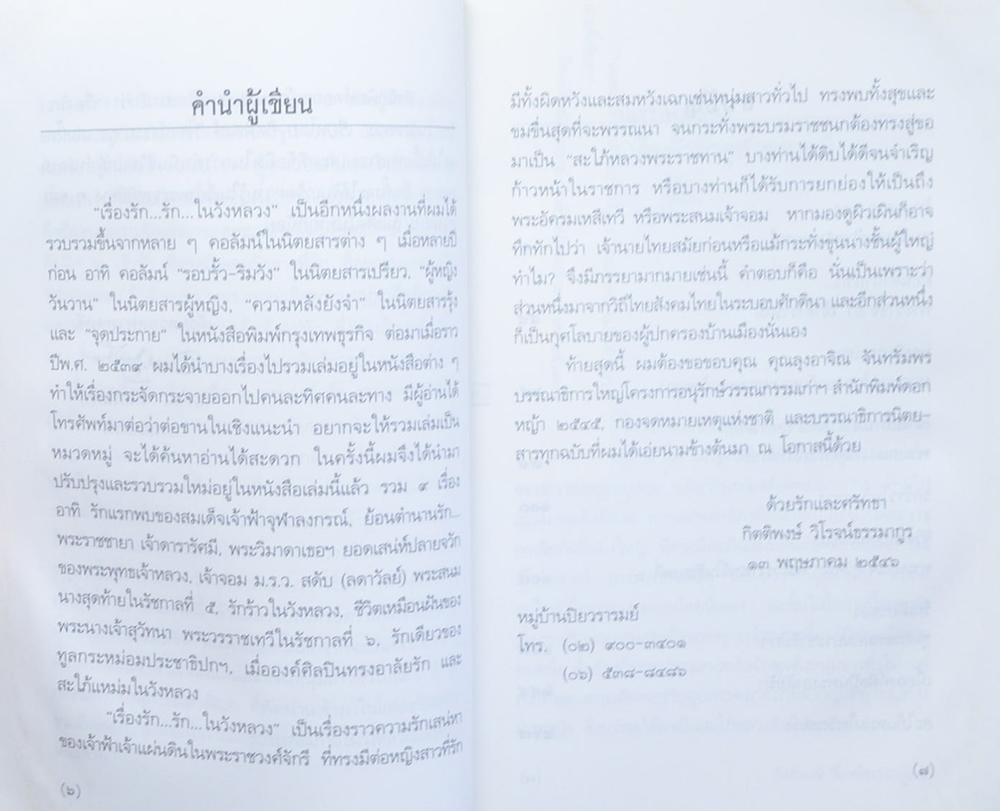 คำนำผู้เขียน
“เรื่องรัก...รัก...ในวังหลวง” เป็นอีกหนึ่งผลงานที่ผมได้
รวบรวมขึ้นจากหลาย ๆ คอลัมน์ในนิตยสารต่าง ๆ เมื่อหลายปี
ก่อน อาทิ คอลัมน์ “รอบรั้ว-ริมวัง” ในนิตยสารเปรียว, “ผู้หญิง
วันวาน” ในนิตยสารผู้หญิง, “ความหลังยังจำ” ในนิตยสารรุ้ง
และ “จุดประกาย” ในหนังสือพิมพ์กรุงเทพธุรกิจ ต่อมาเมื่อราว
ปีพ.ศ. ๒๕๓๙ ผมได้นำบางเรื่องไปรวมเล่มอยู่ในหนังสือต่าง ๆ
ทำให้เรื่องกระจัดกระจายออกไปคนละทิศคนละทาง มีผู้อ่านได้
โทรศัพท์มาต่อว่าต่อขานในเชิงแนะนำ อยากจะให้รวมเล่มเป็น
หมวดหมู่ จะได้ค้นหาอ่านได้สะดวก ในครั้งนี้ผมจึงได้นำมา
ปรับปรุงและรวบรวมใหม่อยู่ในหนังสือเล่มนี้แล้ว รวม ๙ เรื่อง
อาทิ รักแรกพบของสมเด็จเจ้าฟ้าจุฬาลงกรณ์, ย้อนตำนานรัก...
พระราชชายา เจ้าดารารัศมี, พระวิมาดาเธอฯ ยอดเสน่ห์ปลายจวัก
ของพระพุทธเจ้าหลวง, เจ้าจอม ม.ร.ว. สดับ (ลดาวัลย์) พระสนม
นางสุดท้ายในรัชกาลที่ ๕, รักร้าวในวังหลวง, ชีวิตเหมือนฝันของ
พระนางเจ้าสุวัทนา พระวรราชเทวีในรัชกาลที่ ๖, รักเดียวของ
ทูลกระหม่อมประชาธิปกฯ, เมื่อองค์ศิลปินทรงอาลัยรัก และ
สะใภ้แหม่มในวังหลวง
“เรื่องรัก...รัก...ในวังหลวง” เป็นเรื่องราวความรักเสน่หา
ของเจ้าฟ้าเจ้าแผ่นดินในพระราชวงศ์จักรี ที่ทรงมีต่อหญิงสาวที่รัก
(๖)
มีทั้งผิดหวังและสมหวังเฉกเช่นหนุ่มสาวทั่วไป ทรงพบทั้งสุขและ
ขมขื่นสุดที่จะพรรณนา จนกระทั่งพระบรมราชชนกต้องทรงสู่ขอ
มาเป็น “สะใภ้หลวงพระราชทาน” บางท่านได้ดิบได้ดีจนจำเริญ
ก้าวหน้าในราชการ หรือบางท่านก็ได้รับการยกย่องให้เป็นถึง
พระอัครมเหสีเทวี หรือพระสนมเจ้าจอม หากมองดูผิวเผินก็อาจ
ทึกทักไปว่า เจ้านายไทยสมัยก่อนหรือแม้กระทั่งขุนนางชั้นผู้ใหญ่
ทำไม? จึงมีภรรยามากมายเช่นนี้ คำตอบก็คือ นั่นเป็นเพราะว่า
ส่วนหนึ่งมาจากวิถีไทยสังคมไทยในระบอบศักดินา และอีกส่วนหนึ่ง
ก็เป็นกุศโลบายของผู้ปกครองบ้านเมืองนั่นเอง
ท้ายสุดนี้ ผมต้องขอขอบคุณ คุณลุงอาจิณ จันทรัมพร
บรรณาธิการใหญ่โครงการอนุรักษ์วรรณกรรมเก่าฯ สำนักพิมพ์ดอก
หญ้า ๒๕๔๕, กองจดหมายเหตุแห่งชาติ และบรรณาธิการนิตย-
สารทุกฉบับที่ผมได้เอ่ยนามข้างต้นมา ณ โอกาสนี้ด้วย
ด้วยรักและศรัทธา
กิตติพงษ์ วิโรจน์ธรรมากูร
๑๓ พฤษภาคม ๒๕๔๖
หมู่บ้านปิยวรารมย์
โทร. (๐๒) ๙๐๐-๓๔๐๑
(๐๖) ๕๓๘-๘๔๘๖
(๗)